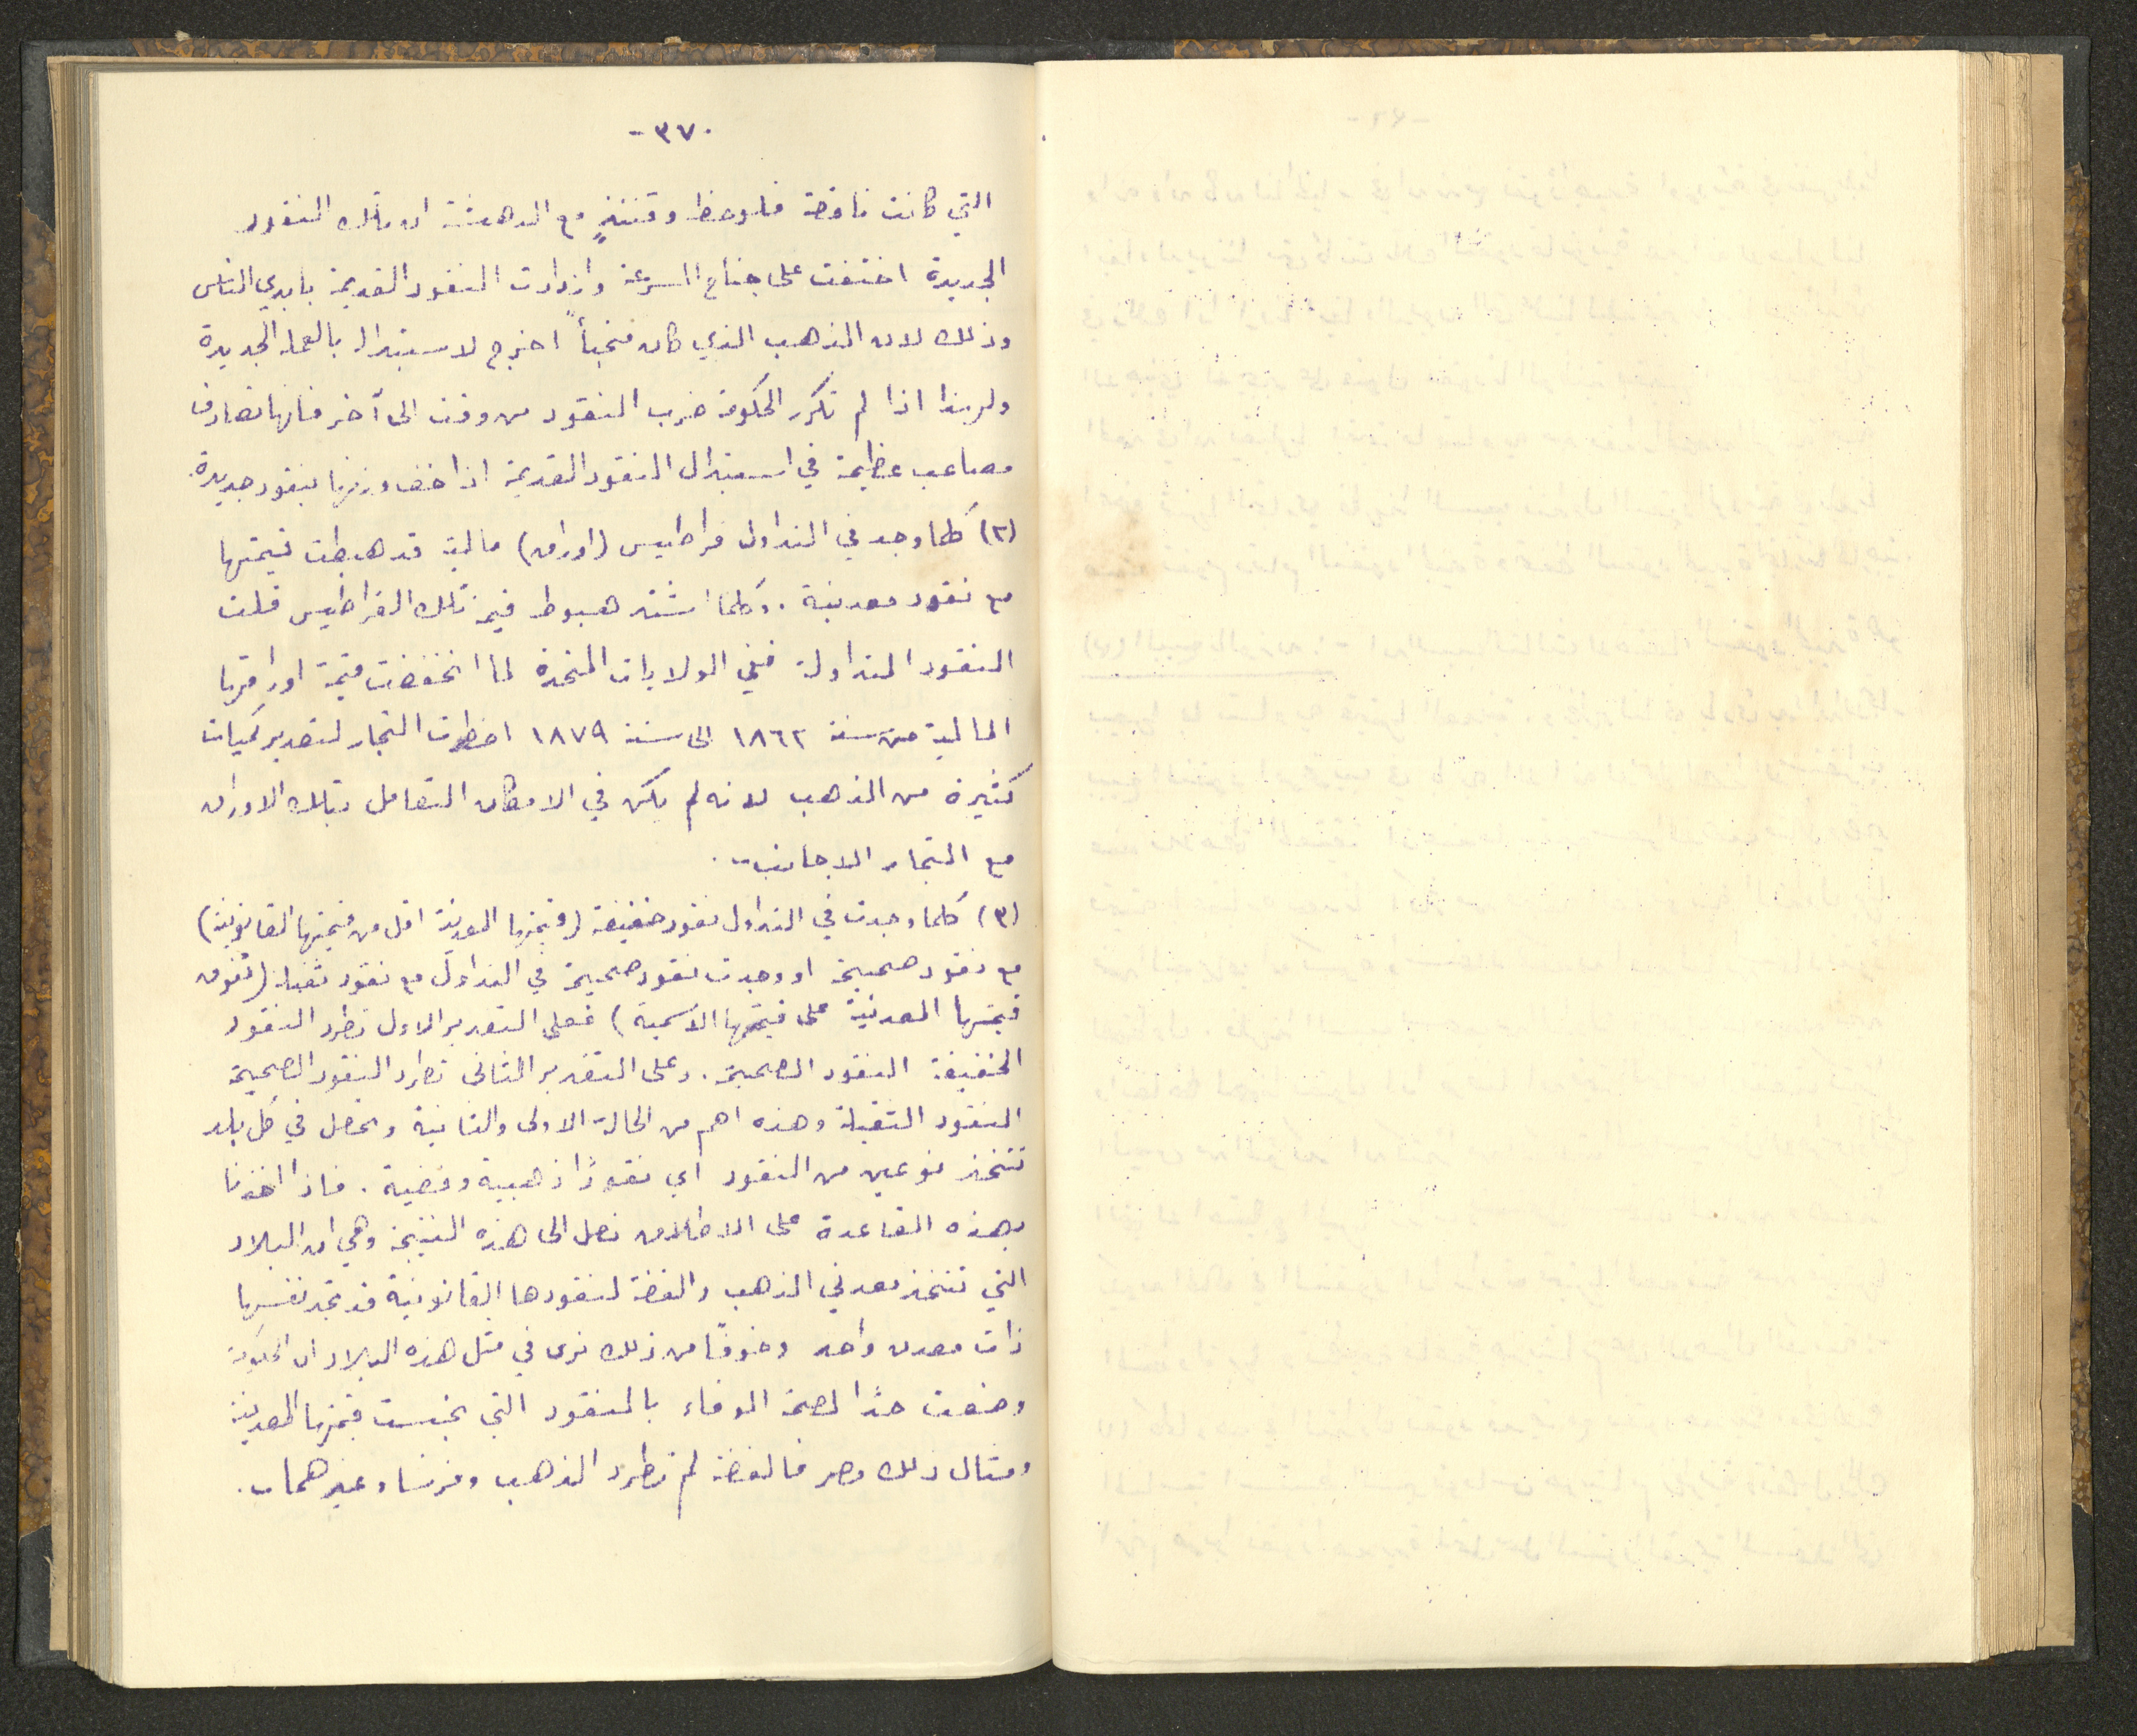 -٣٧٠
التي كانت ناقصة فلوحظ وقتئذٍ مع الدهشة ان تلك النقود
الجديدة اختفت على جناح السرعة وازدادت النقود القديمة بايدي الناس
وذلك لان الذهب الذي كان مخبأً اخرج لاستبدال بالعملة الجديدة
ولهذا اذا لم تكرر الحكومة ضرب النقود من وقت الى آخر فانها تصادف
مصاعب عظيمة في استبدال النقود القديمة اذا خف وزنها بنقود جديدة.
(٢) كلما وجد في التداول قراطيس (اوراق) مالية قد هبطت قيمتها
مع نقود معدنية. وكلما اشتد هبوط قيمة تلك القراطيس قلت
النقود المتداولة ففي الولايات المتحدة لما انخفضت قيمة اوراقها
المالية من سنة ١٨٦٢ الى سنة ١٨٧٩ اضطرت التجار لتصدير كميات
كثيرة من الذهب لانه لم يكن في الامكان التعامل بتلك الاوراق
مع التجار الاجانب.
(٣) كلما وجدت في التداول نقود خفيفة (قيمتها المعدنية اقل من قيمتها القانونية)
مع نقود صحيحة او وجدت نقود صحيحة في التداول مع نقود ثقيلة (تفوق
قيمتها المعدنية على قيمتها الاسمية) فعلى التقدير الاول تطرد النقود
الخفيفة النقود الصحيحة. وعلى التقدير الثاني تطرد النقود الصحيحة
النقود الثقيلة وهذه اهم من الحالة الاولى والثانية وتحصل في كل بلد
تتخذ نوعين من النقود اي نقودًا ذهبية وفضية. فاذا اخذنا
بهذه القاعدة على الاطلاق نصل الى هذه النتيجة وهي ان البلاد
التي تتخذ معدني الذهب والفضة لنقودها القانونية قد تجد نفسها
ذات معدن واحد وخوفًا من ذلك نرى في مثل هذه البلاد ان الحكومة
وضعت حدًا لصحة الوفاء بالنقود التي بخست قيمتها المعدنية
ومثال ذلك مصر فالفضة لم تطرد الذهب وفرنسا وغيرهما.